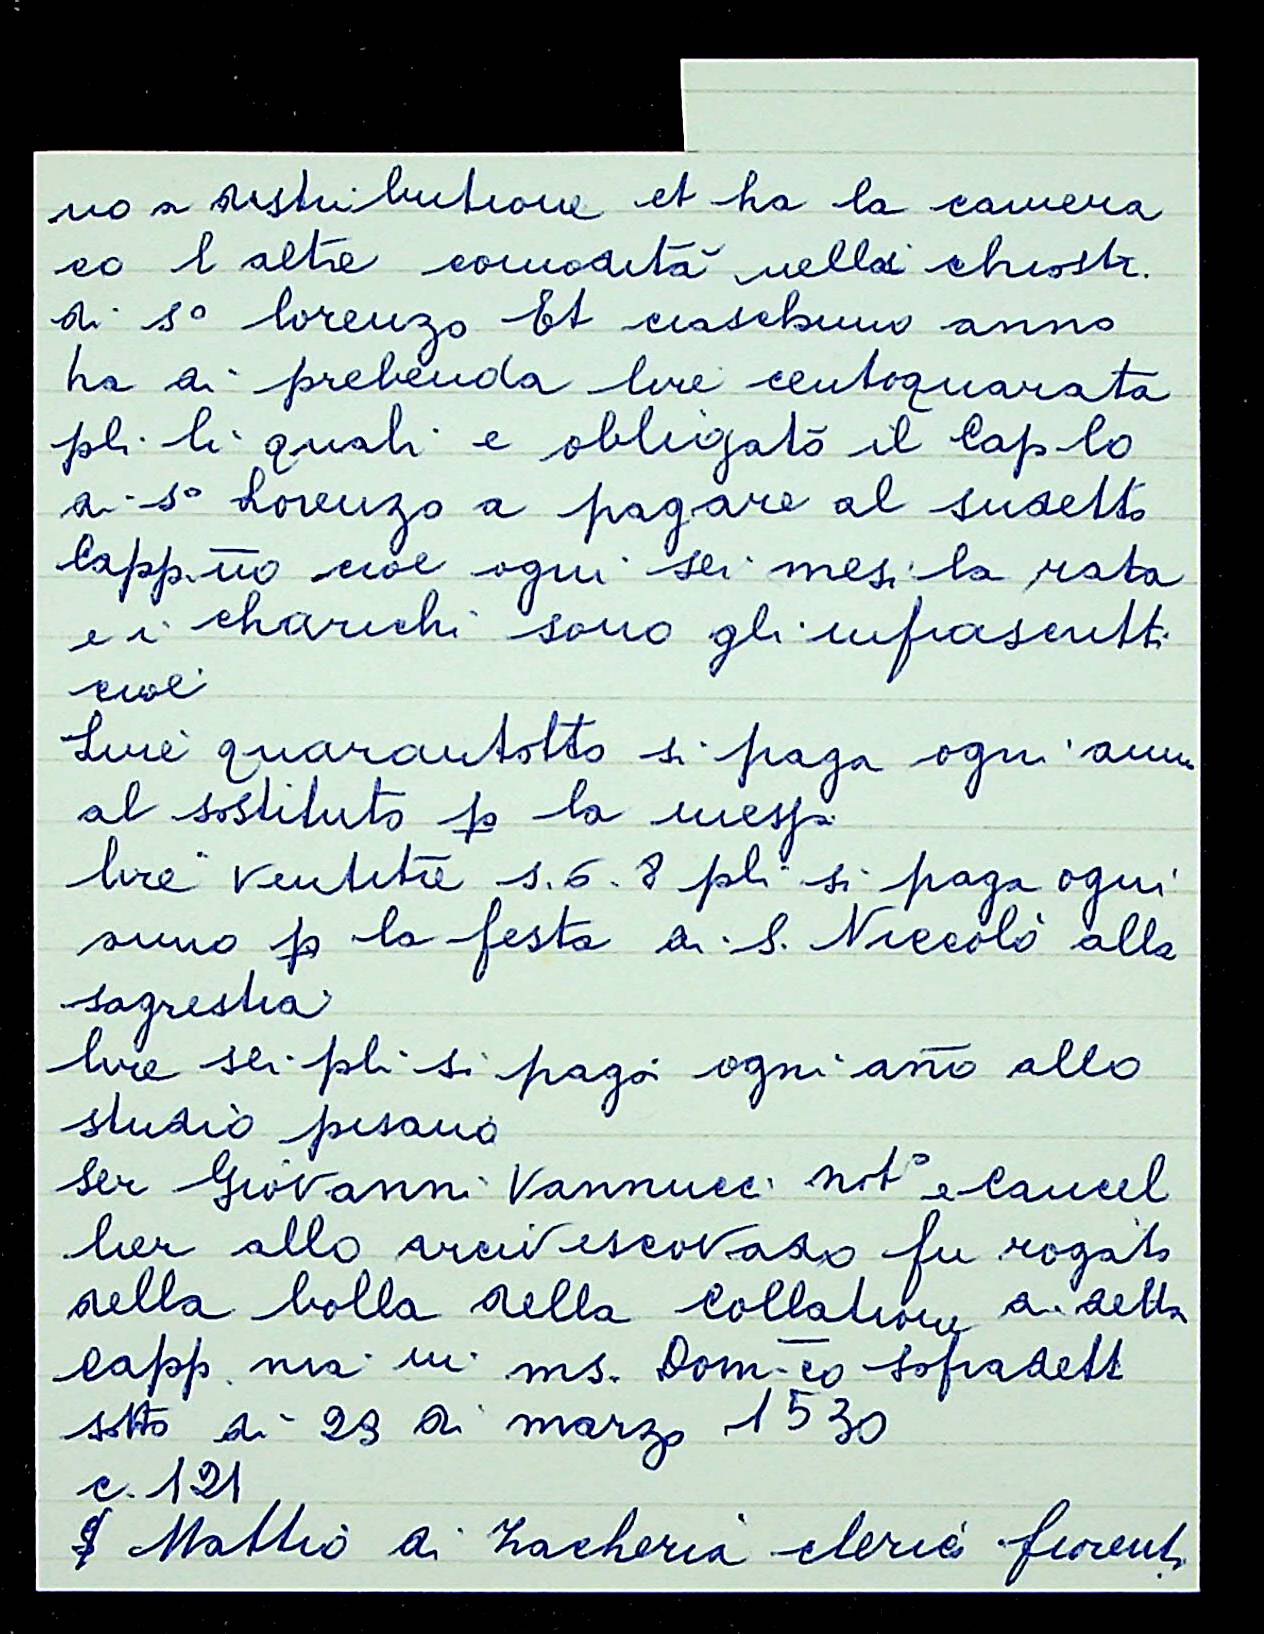 no a distributione et ha la camera
co l altre comodità nella chiostr.
di s° lorenzo Et ciaschuno anno
ha di prebenda lire centoquarātā
pli li quali e obbligato il Cap-lo
di s° Lorenzo a pagare al sudetto
Capp.n̄o cioe ogni sei mesi la rata
e i charichi sono gli infrascritti
cioe
Lire quarantotto si paga ogni anno
al sostituto p la messa
lire ventitrē s. 6. 8 pli si paga ogni
anno p la festa di S. Niccolò alla
sagrestia
lire sei pli si paga ogni año allo
studio pisano
Ser Giovanni Vannucci not° e Cancel
lier allo arcivescovado fu rogato
della bolla della Collatione di detta
capp. nia in ms. Dom-c̄o sopradett
sotto di 29 di marzo 1530
c. 121
§ Mattio di Zacheria clerico fiorent.